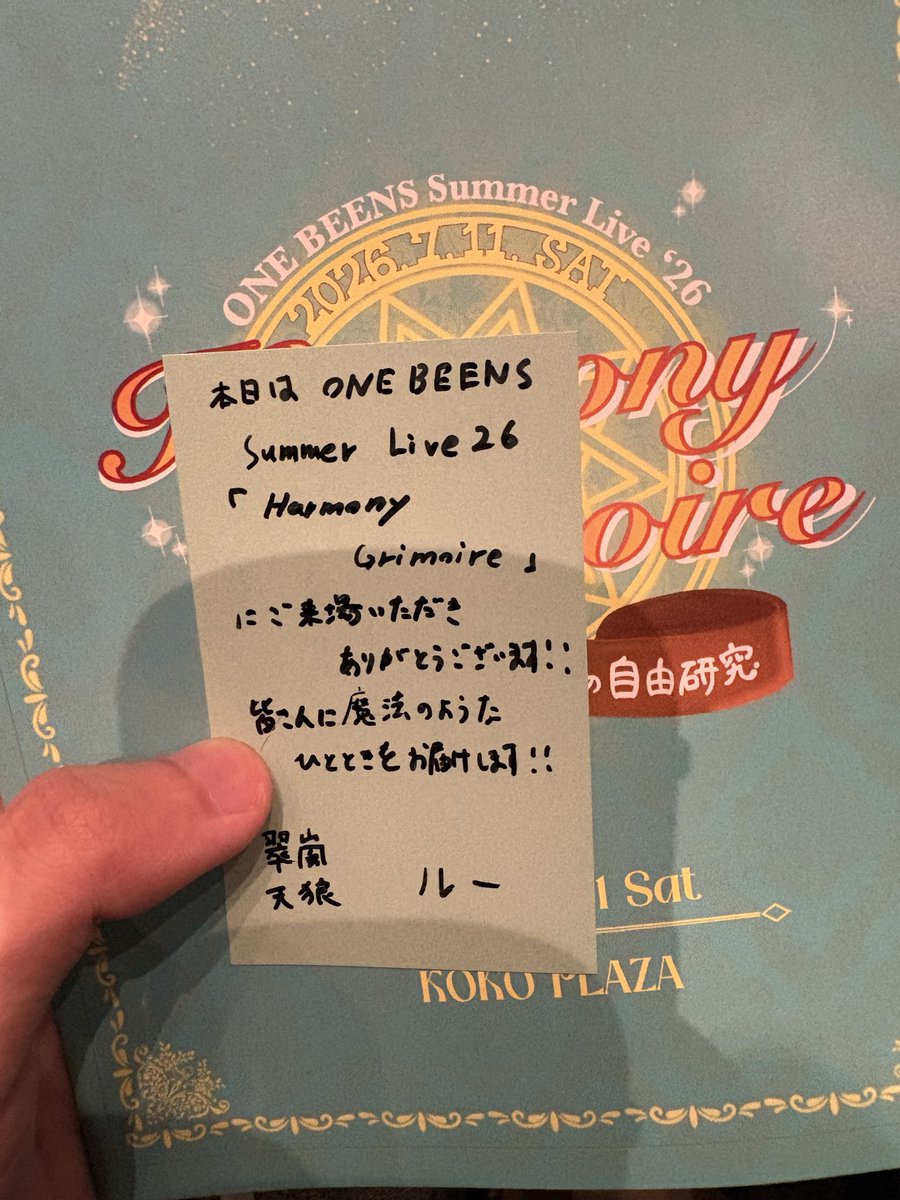 ONE BEENS Summer Live '26
2026.7.11. SAT
本日は ONE BEENS
Summer Live 26
「Harmony
Grimoire」
にご来場いただき
ありがとうございます!!
皆さんに魔法のような
ひとときをお届けします!!
翠嵐
天狼 ルー
ony
oire
の自由研究
1 Sat
KOKO PLAZA